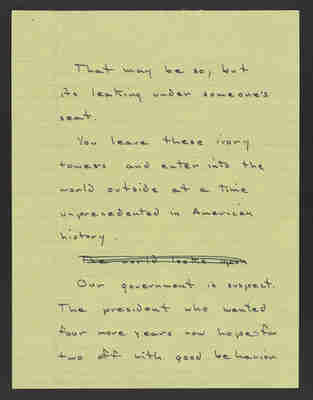 That may be so, but
its leaking under someone's
seat.
You leave these ivory
towers and enter into the
world outside at a time
unprecedented in American
history.
The world looks upon
Our government is suspect.
The president who wanted
four more years now hopes for
two off with good behavior